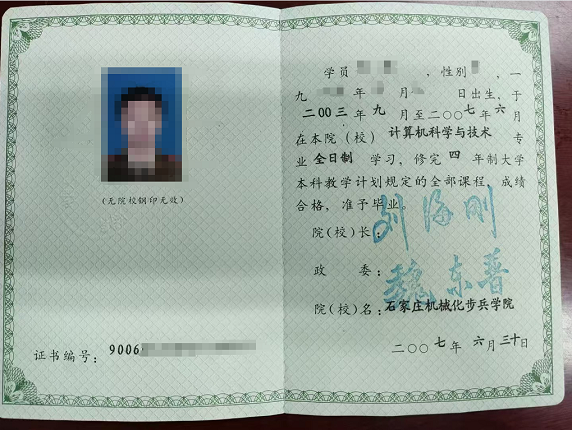 (无院校钢印无效)
证书编号：9006
学员 ，性别 ，一
九 年 月 日出生，于
二00三年九月至二〇〇七年六月
在本院(校) 计算机科学与技术 专
业 全日制 学习，修完 四 年制大学
本科教学计划规定的全部课程，成绩
合格，准予毕业。
院(校)长：刘海刚
政 委：魏东普
院(校)名：石家庄机械化步兵学院
二〇〇七年 六月三十日